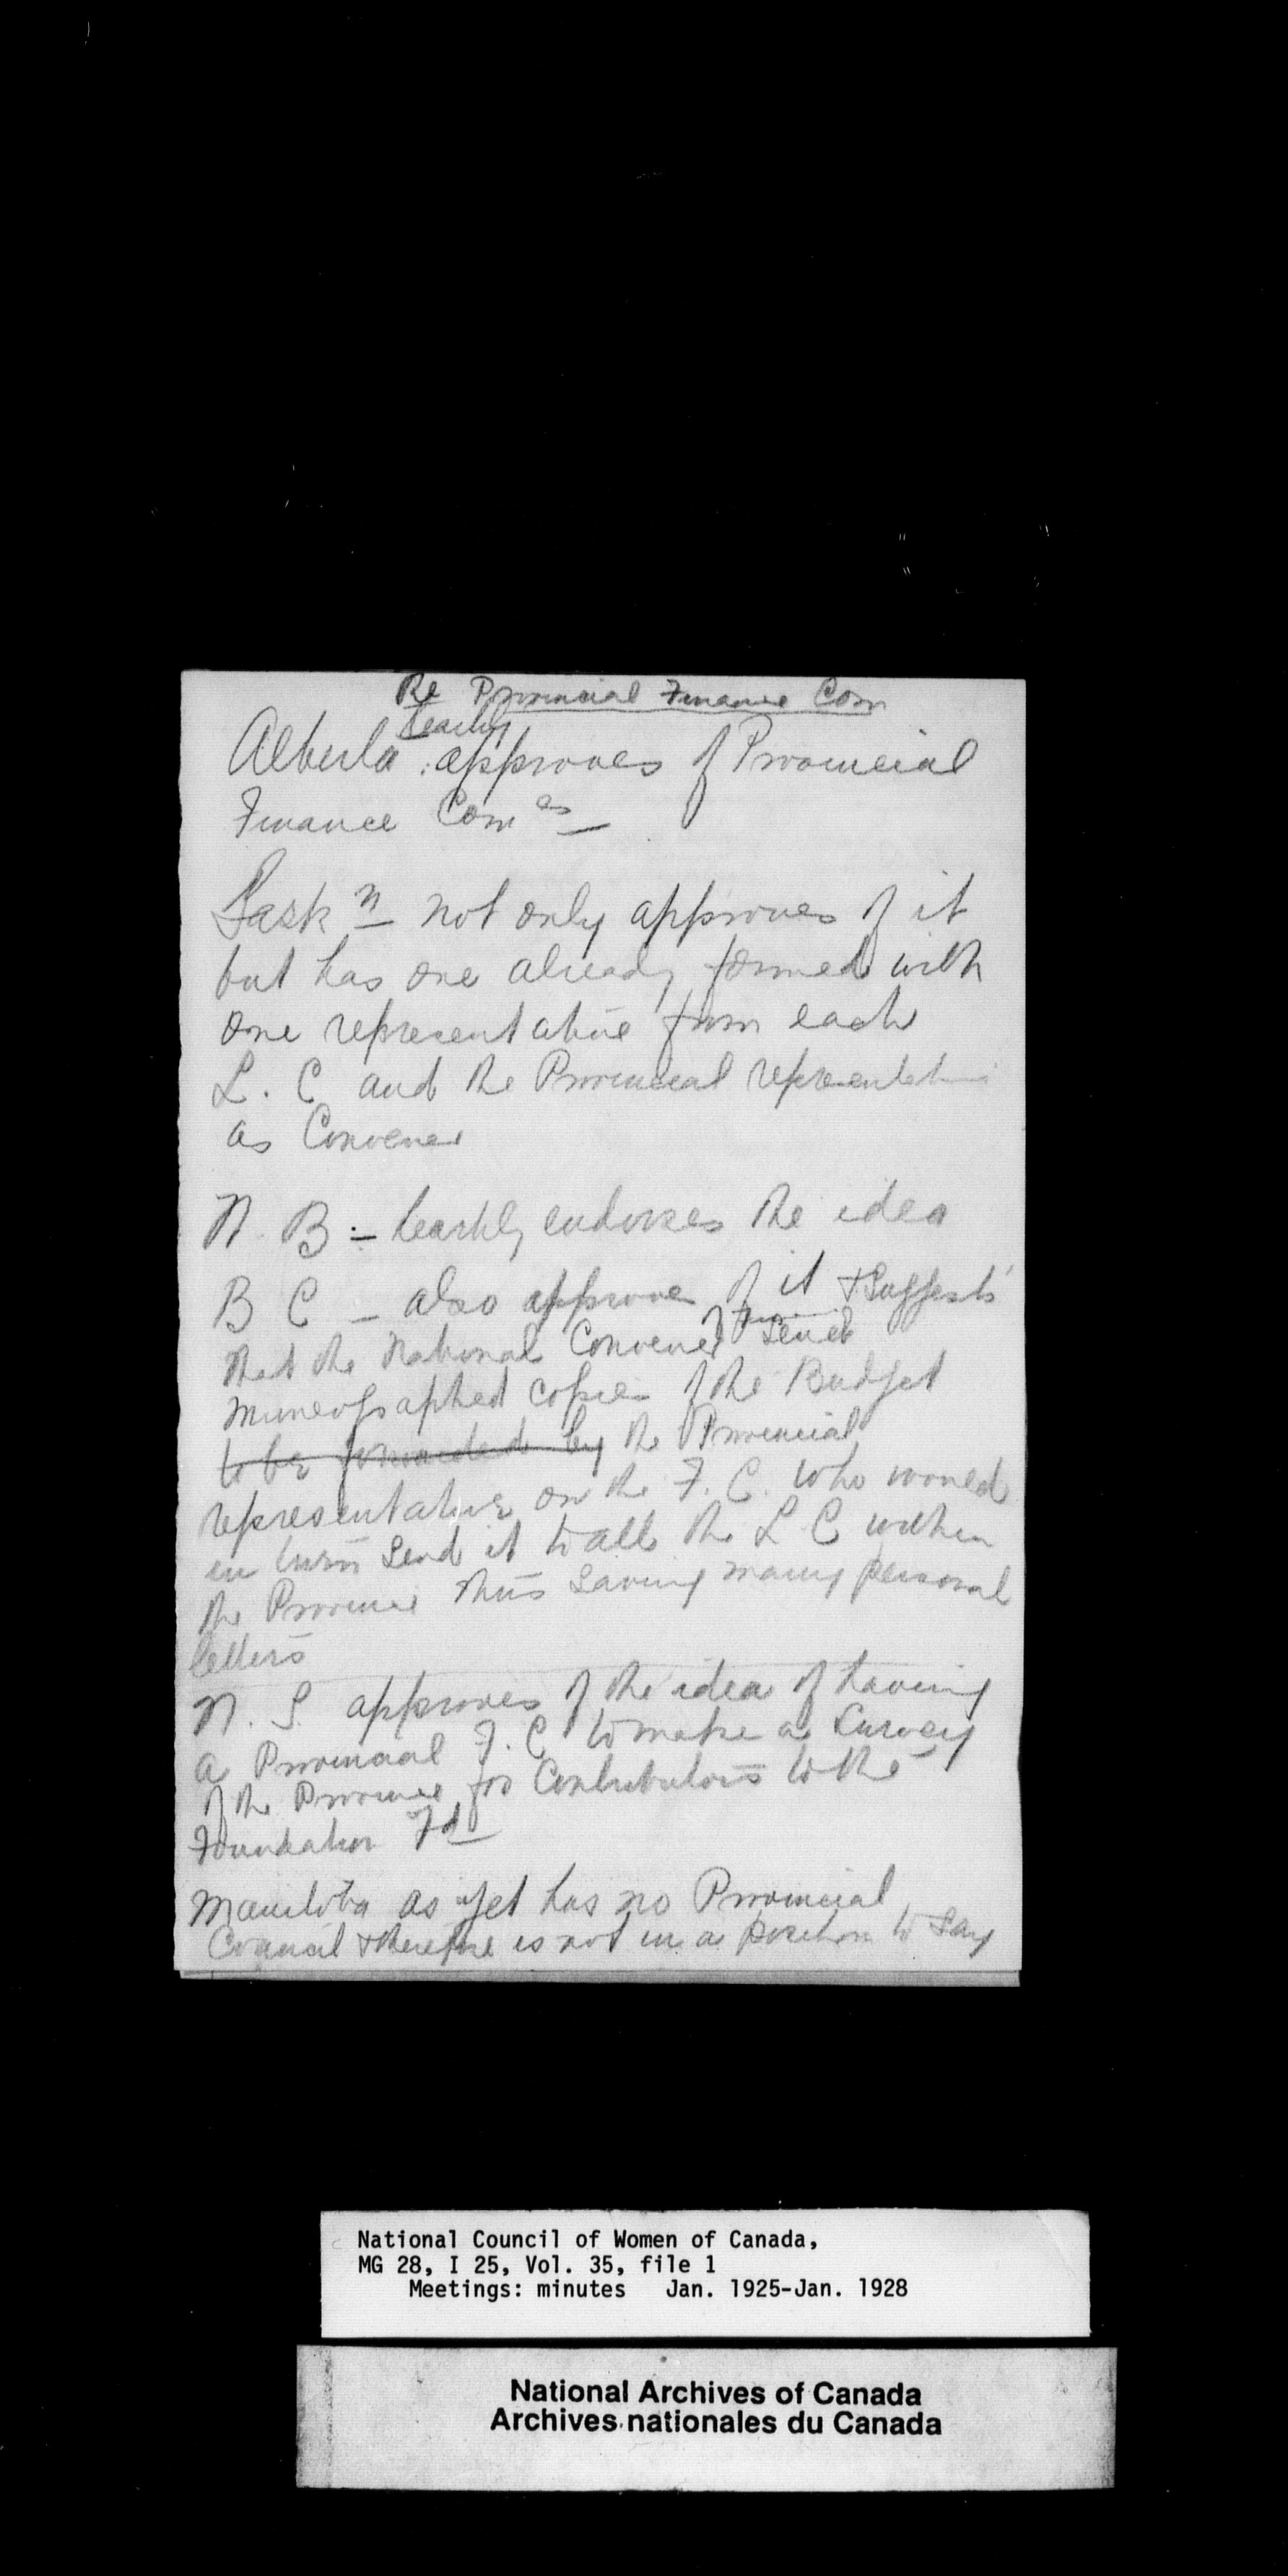 Re Provincial Finance Com
heartily
Alberta approves of Provincial
Finance Com es
Sask n - not only approves of it
but has one already formed with
one representative from each
L. C and the Provincial representative
as Convener
N. B - heartily endorses the idea
B C - also approves of it & suggests
that the National Convener of send
mimeographed copies of the Budget
to be forwarded by the Provincial
representative on the F. C. who would
in turn send it to all the L C within
the Province thus saving many personal
letters
N. S. approves of the idea of having
a Provincial F. C to make a survey
of the Province for Contributors to the
Foundation Fd
Manitoba as yet has no Provincial
Council & therefore is not in a position to say
National Council of Women of Canada,
MG 28, I 25, Vol. 35, file 1
Meetings: minutes Jan. 1925-Jan. 1928
National Archives of Canada
Archives nationales du Canada